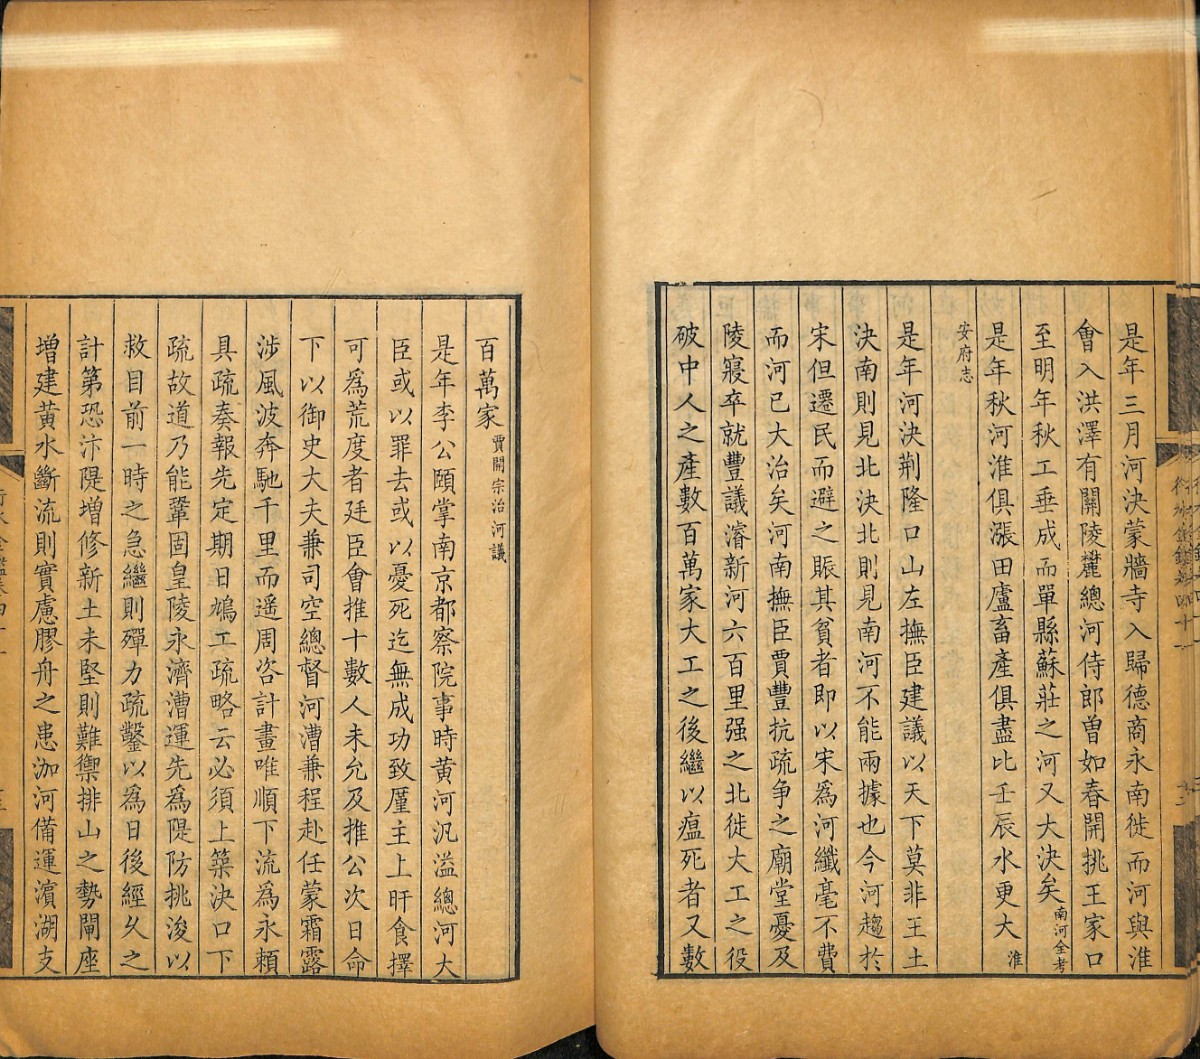 是年三月河決蒙牆寺入歸德商永南徙而河與淮
會入洪澤有關陵麓總河侍郎曾如春開挑王家口
至明年秋工垂成而單縣蘇莊之河又大決矣南河全考
是年秋河淮俱漲田廬畜產俱盡比壬辰水更大淮
安府志
是年河決荆隆口山左撫臣建議以天下莫非王土
決南則見北決北則見南河不能兩據也今河趨於
宋但遷民而避之賑其貧者即以宋爲河纖毫不費
而河已大治矣河南撫臣賈豐抗疏争之廟堂憂及
陵寢卒就豐議濬新河六百里强之北徙大工之役
破中人之產數百萬家大工之後繼以瘟死者又數
百萬家賈開宗治河議
是年李公頤掌南京都察院事時黄河汎溢總河大
臣或以罪去或以憂死迄無成功致厪主上旰食擇
可爲荒度者廷臣會推十數人未允及推公次日命
下以御史大夫兼司空總督河漕兼程赴任蒙霜露
涉風波奔馳千里而遥周咨計畫唯順下流爲永頼
具疏奏報先定期日鳩工疏略云必須上築決口下
疏故道乃能鞏固皇陵永濟漕運先爲隄防挑浚以
救目前一時之急繼則殫力疏鑿以爲日後經久之
計第恐汴隄增修新土未堅則難禦排山之勢閘座
增建黄水斷流則實慮膠舟之患泇河備運濵湖支